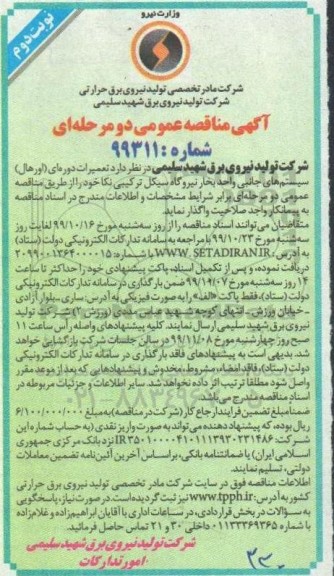 وزارت نیرو
نوبت دوم
شرکت مادر تخصصی تولید نیروی برق حرارتی
شرکت تولید نیروی برق شهید سلیمی
آگهی مناقصه عمومی دو مرحله‌ای
شماره : ۹۹۳۱۱
شرکت تولید نیروی برق شهید سلیمی در نظر دارد تعمیرات دوره‌ای (اورهال)
سیستم‌های جانبی واحد بخار نیروگاه سیکل ترکیبی نکا خود را از طریق مناقصه
عمومی دو مرحله‌ای برابر شرایط مشخصات و اطلاعات مندرج در اسناد مناقصه
به پیمانکار واجد صلاحیت واگذار نماید
متقاضیان می‌توانند اسناد مناقصه را از روز سه‌شنبه مورخ ۹۹/۱۰/۱۶ لغایت روز
سه‌شنبه مورخ ۹۹/۱۰/۲۳ با مراجعه به سامانه تدارکات الکترونیکی دولت (ستاد)
به آدرس: WWW.SETADIRAN.IR با شماره: ۲۰۹۹۰۰۱۳۶۴۰۰۰۰۱۵
دریافت نموده، و پس از تکمیل اسناد، پاکت پیشنهادی خود را حداکثر تا ساعت
۱۴ روز سه‌شنبه مورخ ۹۹/۱۱/۰۷ ضمن بارگذاری در سامانه تدارکات الکترونیکی
دولت (ستاد)، فقط پاکت «الف» را به صورت فیزیکی به آدرس: ساری، بلوار آزادی
- خیابان ورزش - انتهای کوچه شهید عباس مددی (ورزش ۲) شرکت تولید
نیروی برق شهید سلیمی ارسال نمایند. کلیه پیشنهادهای واصله رأس ساعت ۱۱
صبح روز چهارشنبه مورخ ۹۹/۱۱/۰۸ در سالن جلسات شرکت بازگشایی خواهد
شد. بدیهی است به پیشنهادهای فاقد بارگذاری در سامانه تدارکات الکترونیکی
دولت (ستاد)، فاقد امضاء، مشروط، مخدوش و پیشنهادهایی که بعد از موعد مقرر
واصل شود مطلقاً ترتیب اثر داده نخواهد شد. سایر اطلاعات و جزئیات مربوطه در
اسناد مناقصه مندرج می‌باشد.
ضمناً مبلغ تضمین فرایند ارجاع کار (شرکت در مناقصه) به مبلغ ۶/۱۰۰/۰۰۰/۰۰۰
ریال بوده، که پیشنهاد دهنده می‌تواند به صورت واریز نقدی (به حساب شماره این
شرکت: IR۳۵۰۱۰۰۰۰۴۱۰۱۱۱۳۹۳۰۲۳۱۴۸۶ نزد بانک مرکزی جمهوری
اسلامی ایران) یا ضمانتنامه بانکی، براساس آخرین آئین‌نامه تضمین معاملات
دولتی، تسلیم نمایند.
اطلاعات مناقصه فوق در سایت شرکت مادر تخصصی تولید نیروی برق حرارتی
کشور به آدرس: www.tpph.ir نیز ثبت گردیده است. در صورت نیاز، پاسخگویی
به سوالات در بخش قراردادی، در ساعات اداری با آقایان ابراهیم‌زاده و غلام‌زاده
با شماره ۰۱۱۳۳۳۶۹۳۶۵ داخلی ۳۰ و ۲۱ تماس حاصل فرمائید.
شرکت تولید نیروی برق شهید سلیمی
امور تدارکات